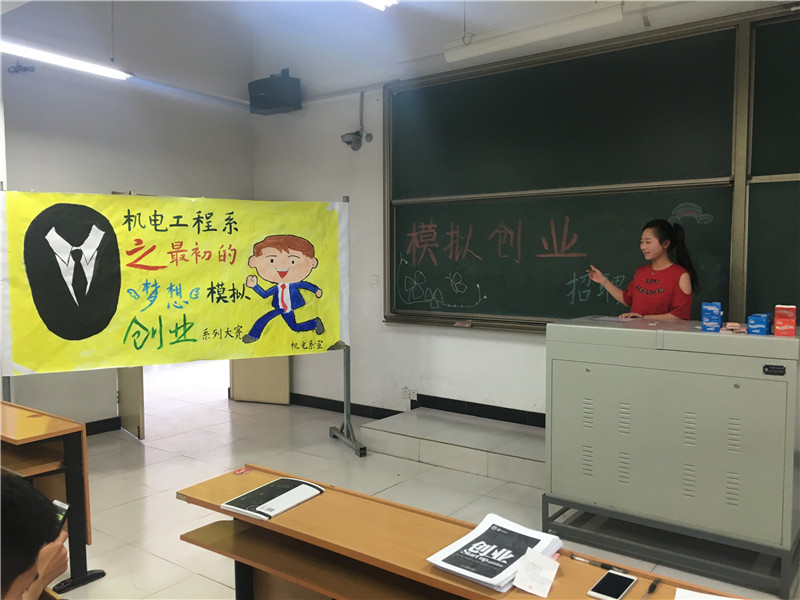 机电工程系
之最初的
梦想 模拟
创业 系列大赛
机电系宣
模拟创业
招聘
创业
Start up